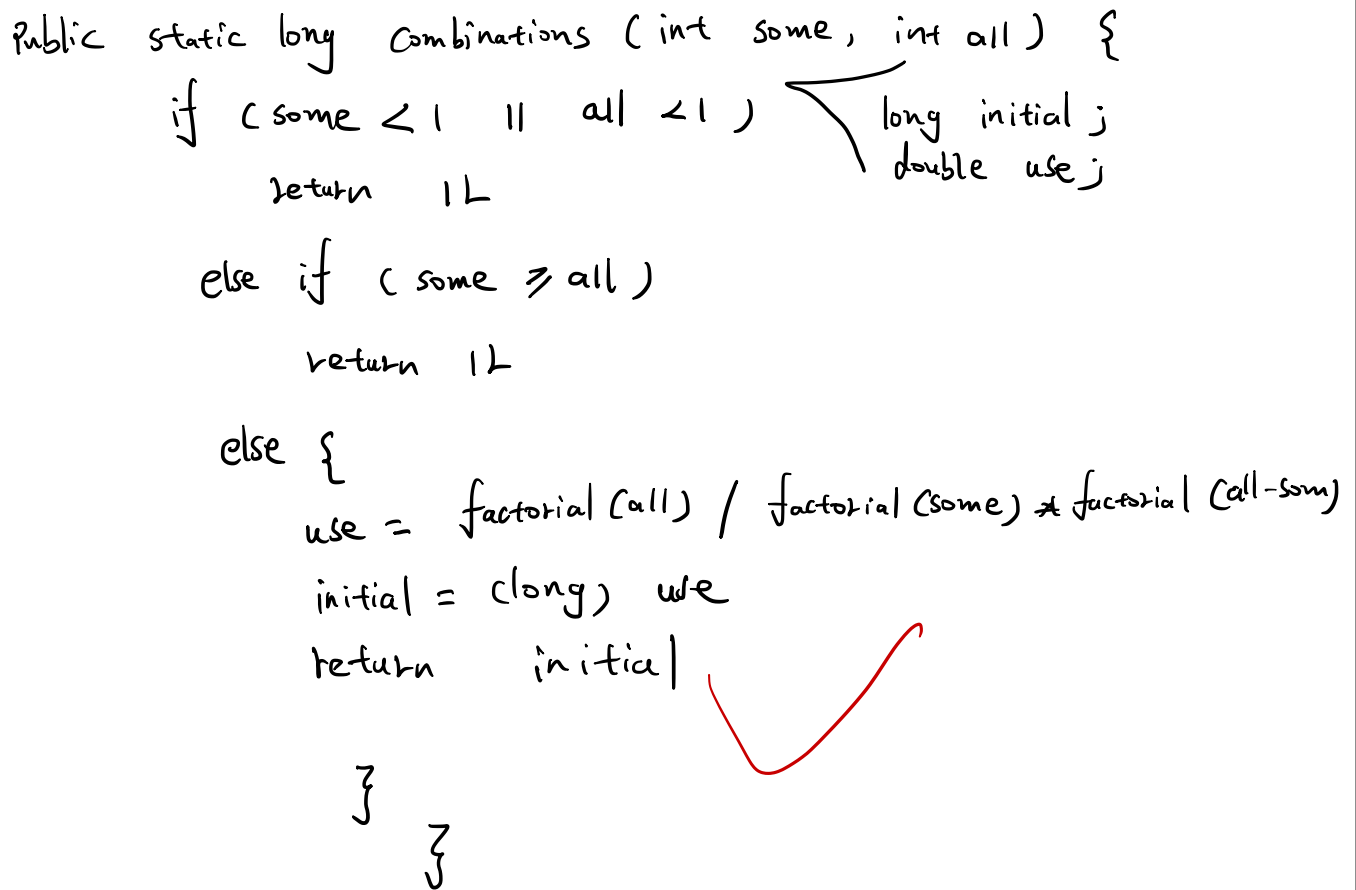 Public static long combinations (int some, int all) {
if (some < 1 || all < 1)
long initial;
double use;
return 1L
else if (some ⩾ all)
return 1L
else {
use = factorial (all) / factorial (some) * factorial (all-som)
initial = (long) use
return initial
}
}